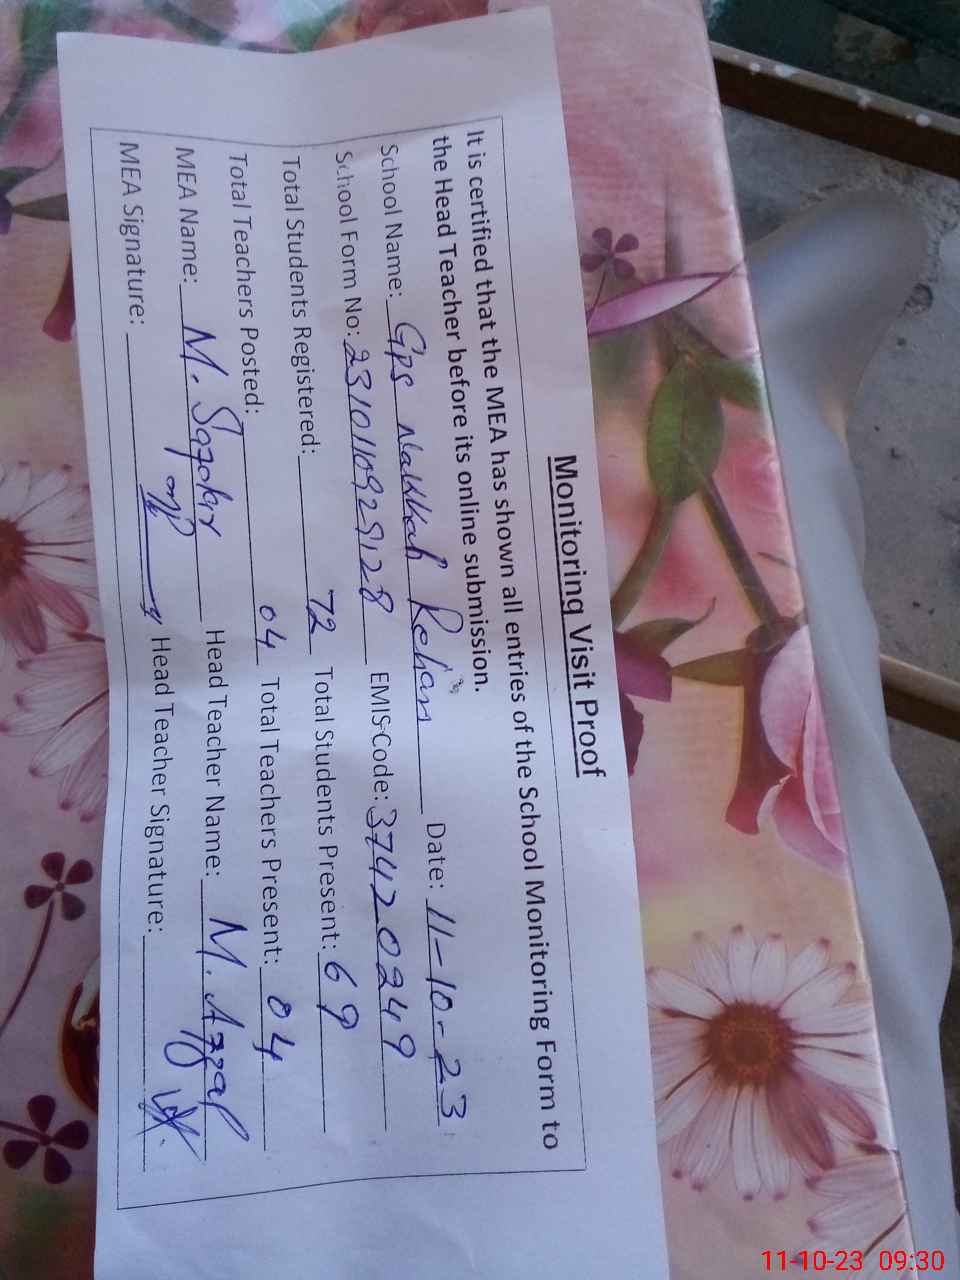 Monitoring Visit Proof
It is certified that the MEA has shown all entries of the School Monitoring Form to
the Head Teacher before its online submission.
School Name: Gps Nakkah Rehan Date: 11-10-23
School Form No: 2310110929128 EMIS Code: 37420249
Total Students Registered: 72 Total Students Present: 69
Total Teachers Posted: 04 Total Teachers Present: 04
MEA Name: M. Head Teacher Name: M. Afzal
MEA Signature: Head Teacher Signature:
11-10-23 09:30